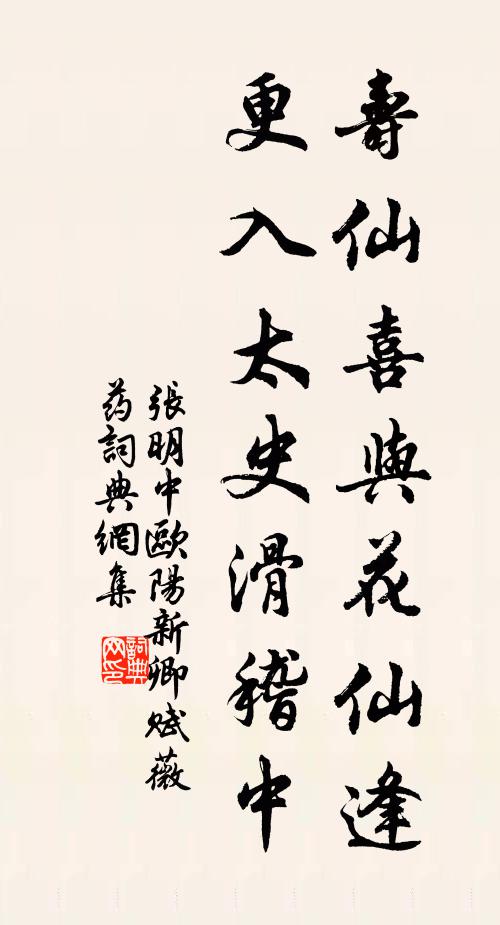 壽仙喜與花仙逢
更入太史滑稽中
張明中歐陽新卿賦薇
药詞典網集
詞典
网印